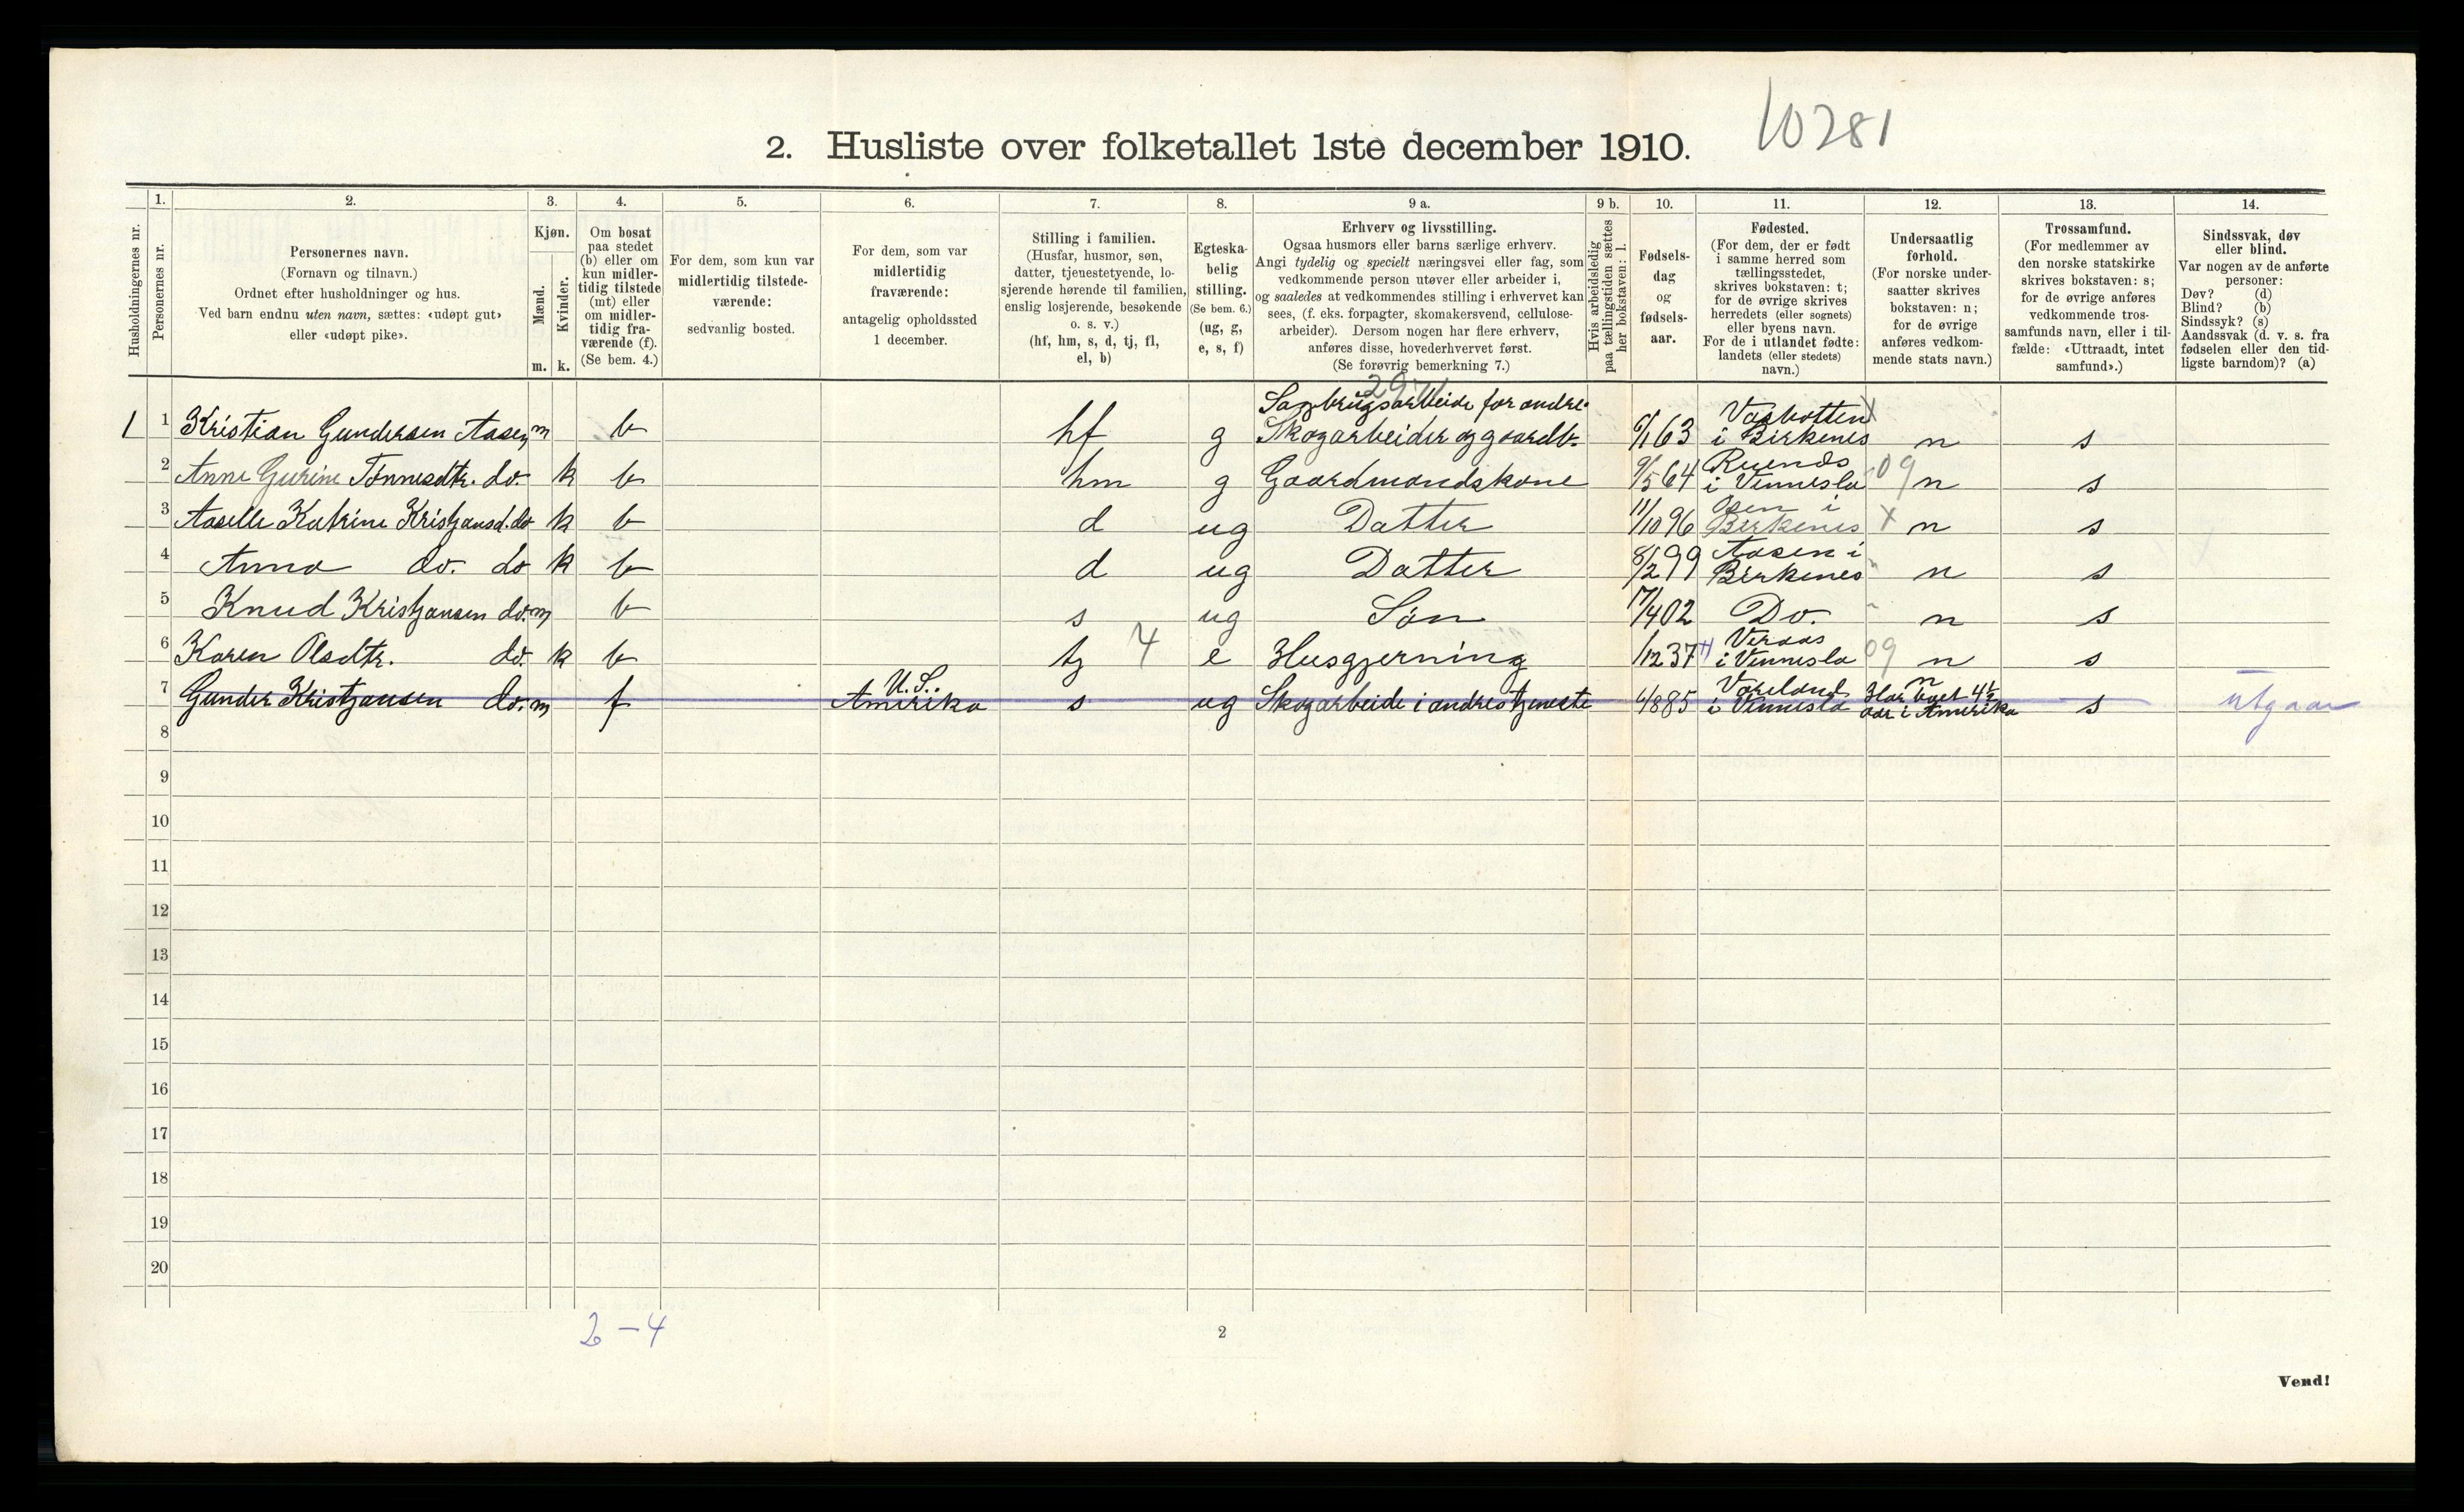 10281
2. Husliste over folketallet 1ste december 1910.
Husholdningernes nr.
1.
Personernes nr.
2.
Personernes navn.
(Fornavn og tilnavn.)
Ordnet efter husholdninger og hus.
Ved barn endnu uten navn, sættes: «udøpt gut»
eller «udøpt pike».
3.
Kjøn.
Mænd.
Kvinder.
m. k.
4.
Om bosat
paa stedet
(b) eller om
kun midler-
tidig tilstede
(mt) eller
om midler-
tidig fra-
værende (f).
(Se bem. 4.)
5.
For dem, som kun var
midlertidig tilstede-
værende:
sedvanlig bosted.
6.
For dem, som var
midlertidig
fraværende:
antagelig opholdssted
1 december.
7.
Stilling i familien.
(Husfar, husmor, søn,
datter, tjenestetyende, lo-
sjerende hørende til familien,
enslig losjerende, besøkende
o. s. v.)
(hf, hm, s, d, tj, fl,
el, b)
8.
Egteska-
belig
stilling.
(Se bem. 6.)
(ug, g,
e, s, f)
9 a.
Erhverv og livsstilling.
Ogsaa husmors eller barns særlige erhverv.
Angi tydelig og specielt næringsvei eller fag, som
vedkommende person utøver eller arbeider i,
og saaledes at vedkommendes stilling i erhvervet kan
sees, (f. eks. forpagter, skomakersvend, cellulose-
arbeider). Dersom nogen har flere erhverv,
anføres disse, hovederhvervet først.
(Se forøvrig bemerkning 7.)
9 b.
Hvis arbeidsledig
paa tællingstiden sættes
her bokstaven: l.
10.
Fødsels-
dag
og
fødsels-
aar.
11.
Fødested.
(For dem, der er født
i samme herred som
tællingsstedet,
skrives bokstaven: t;
for de øvrige skrives
herredets (eller sognets)
eller byens navn.
For de i utlandet fødte:
landets (eller stedets)
navn.)
12.
Undersaatlig
forhold.
(For norske under-
saatter skrives
bokstaven: n;
for de øvrige
anføres vedkom-
mende stats navn.)
13.
Trossamfund.
(For medlemmer av
den norske statskirke
skrives bokstaven: s;
for de øvrige anføres
vedkommende tros-
samfunds navn, eller i til-
fælde: «Uttraadt, intet
samfund».)
14.
Sindssvak, døv
eller blind.
Var nogen av de anførte
personer:
Døv? (d)
Blind? (b)
Sindssyk? (s)
Aandssvak (d. v. s. fra
fødselen eller den tid-
ligste barndom)? (a)
Sagbrugsarbeide for andre. Vasbotten X
1 1 Kristian Gundersen Aasen m b hf g Skogarbeider og gaardb. 6/1 63 i Birkenes n s
2 Anne Gurine Tønnesdtr. do. k b hm g Gaardmandskone 9/5 64 i Vennesla 09 n s
Osen i
3 Aaselle Katrine Kristjansd. do k b d ug Datter 11/10 96 Birkenes X n s
Aasen i
4 Anna do. do k b d ug Datter 8/2 99 Birkenes n s
5 Knud Kristjansen do. m b s ug Søn 17/4 02 Do. n s
Veraas
6 Karen Olsdtr. do. k b tj 4 e Husgjerning 1/12 37 i Vennesla 09 n s
U.S. n
Har boet 4½
7 Gunder Kristjansen do. m f Amerika s ug Skogarbeide i andres tjeneste 4/8 85 i Vennesla aar i Amerika s utgaar
8
9
10
11
12
13
14
15
16
17
18
19
20
2-4
2
Vend!